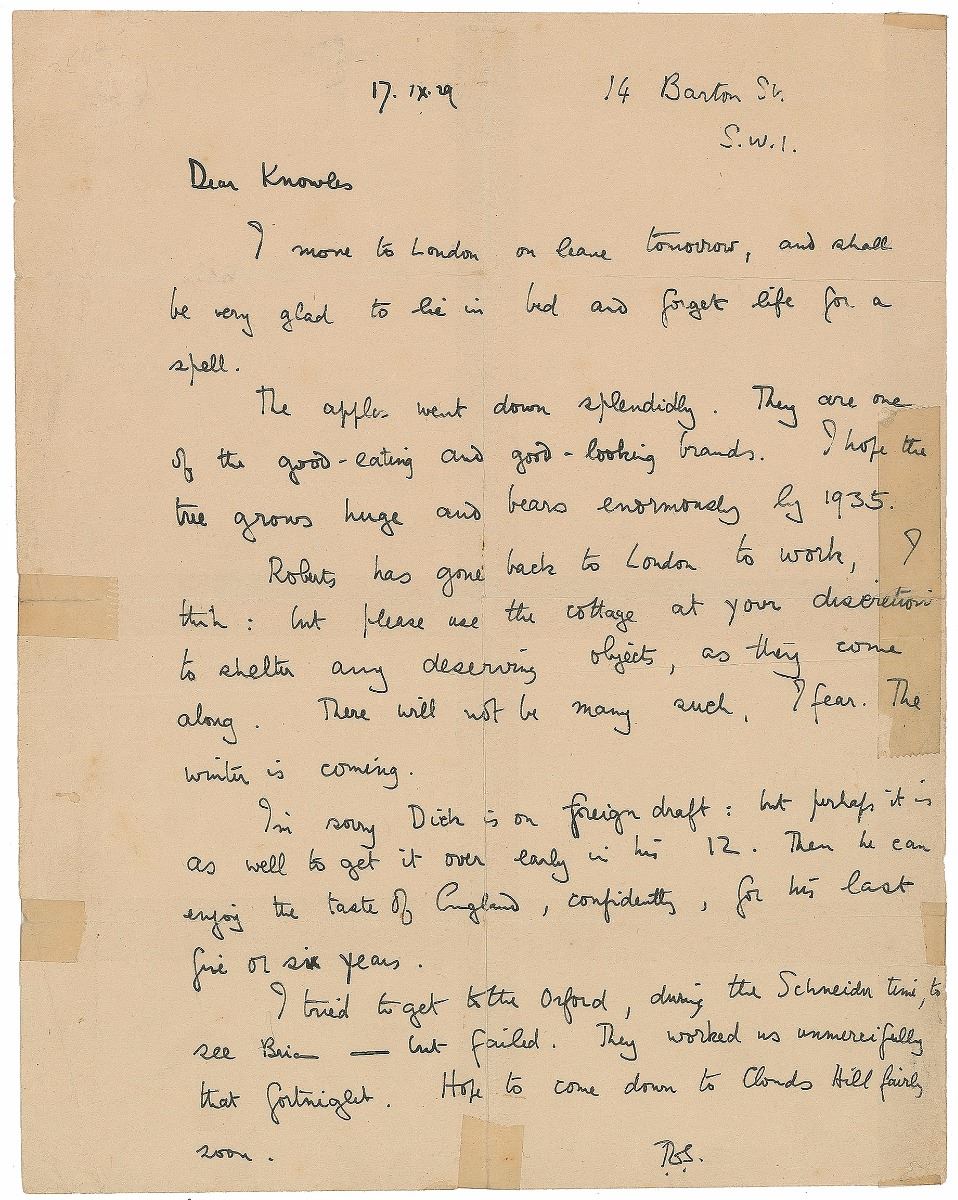 17. IX. 29 14 Barton St.
S.W.1.
Dear Knowles
I move to London on leave tomorrow, and shall
be very glad to lie in bed and forget life for a
spell.
The apples went down splendidly. They are one
of the good-eating and good-looking brands. I hope the
tree grows huge and bears enormously by 1935.
Roberts has gone back to London to work, I
think: but please use the cottage at your discretion
to shelter any deserving objects, as they come
along. There will not be many such, I fear. The
winter is coming.
I'm sorry Dick is on foreign draft: but perhaps it is
as well to get it over early in his 12. Then he can
enjoy the taste of England, confidently, for his last
five or six years.
I tried to get to the Orford, during the Schneider time, to
see Brian — but failed. They worked us unmercifully
that fortnight. Hope to come down to Clouds Hill fairly
soon.
TES.